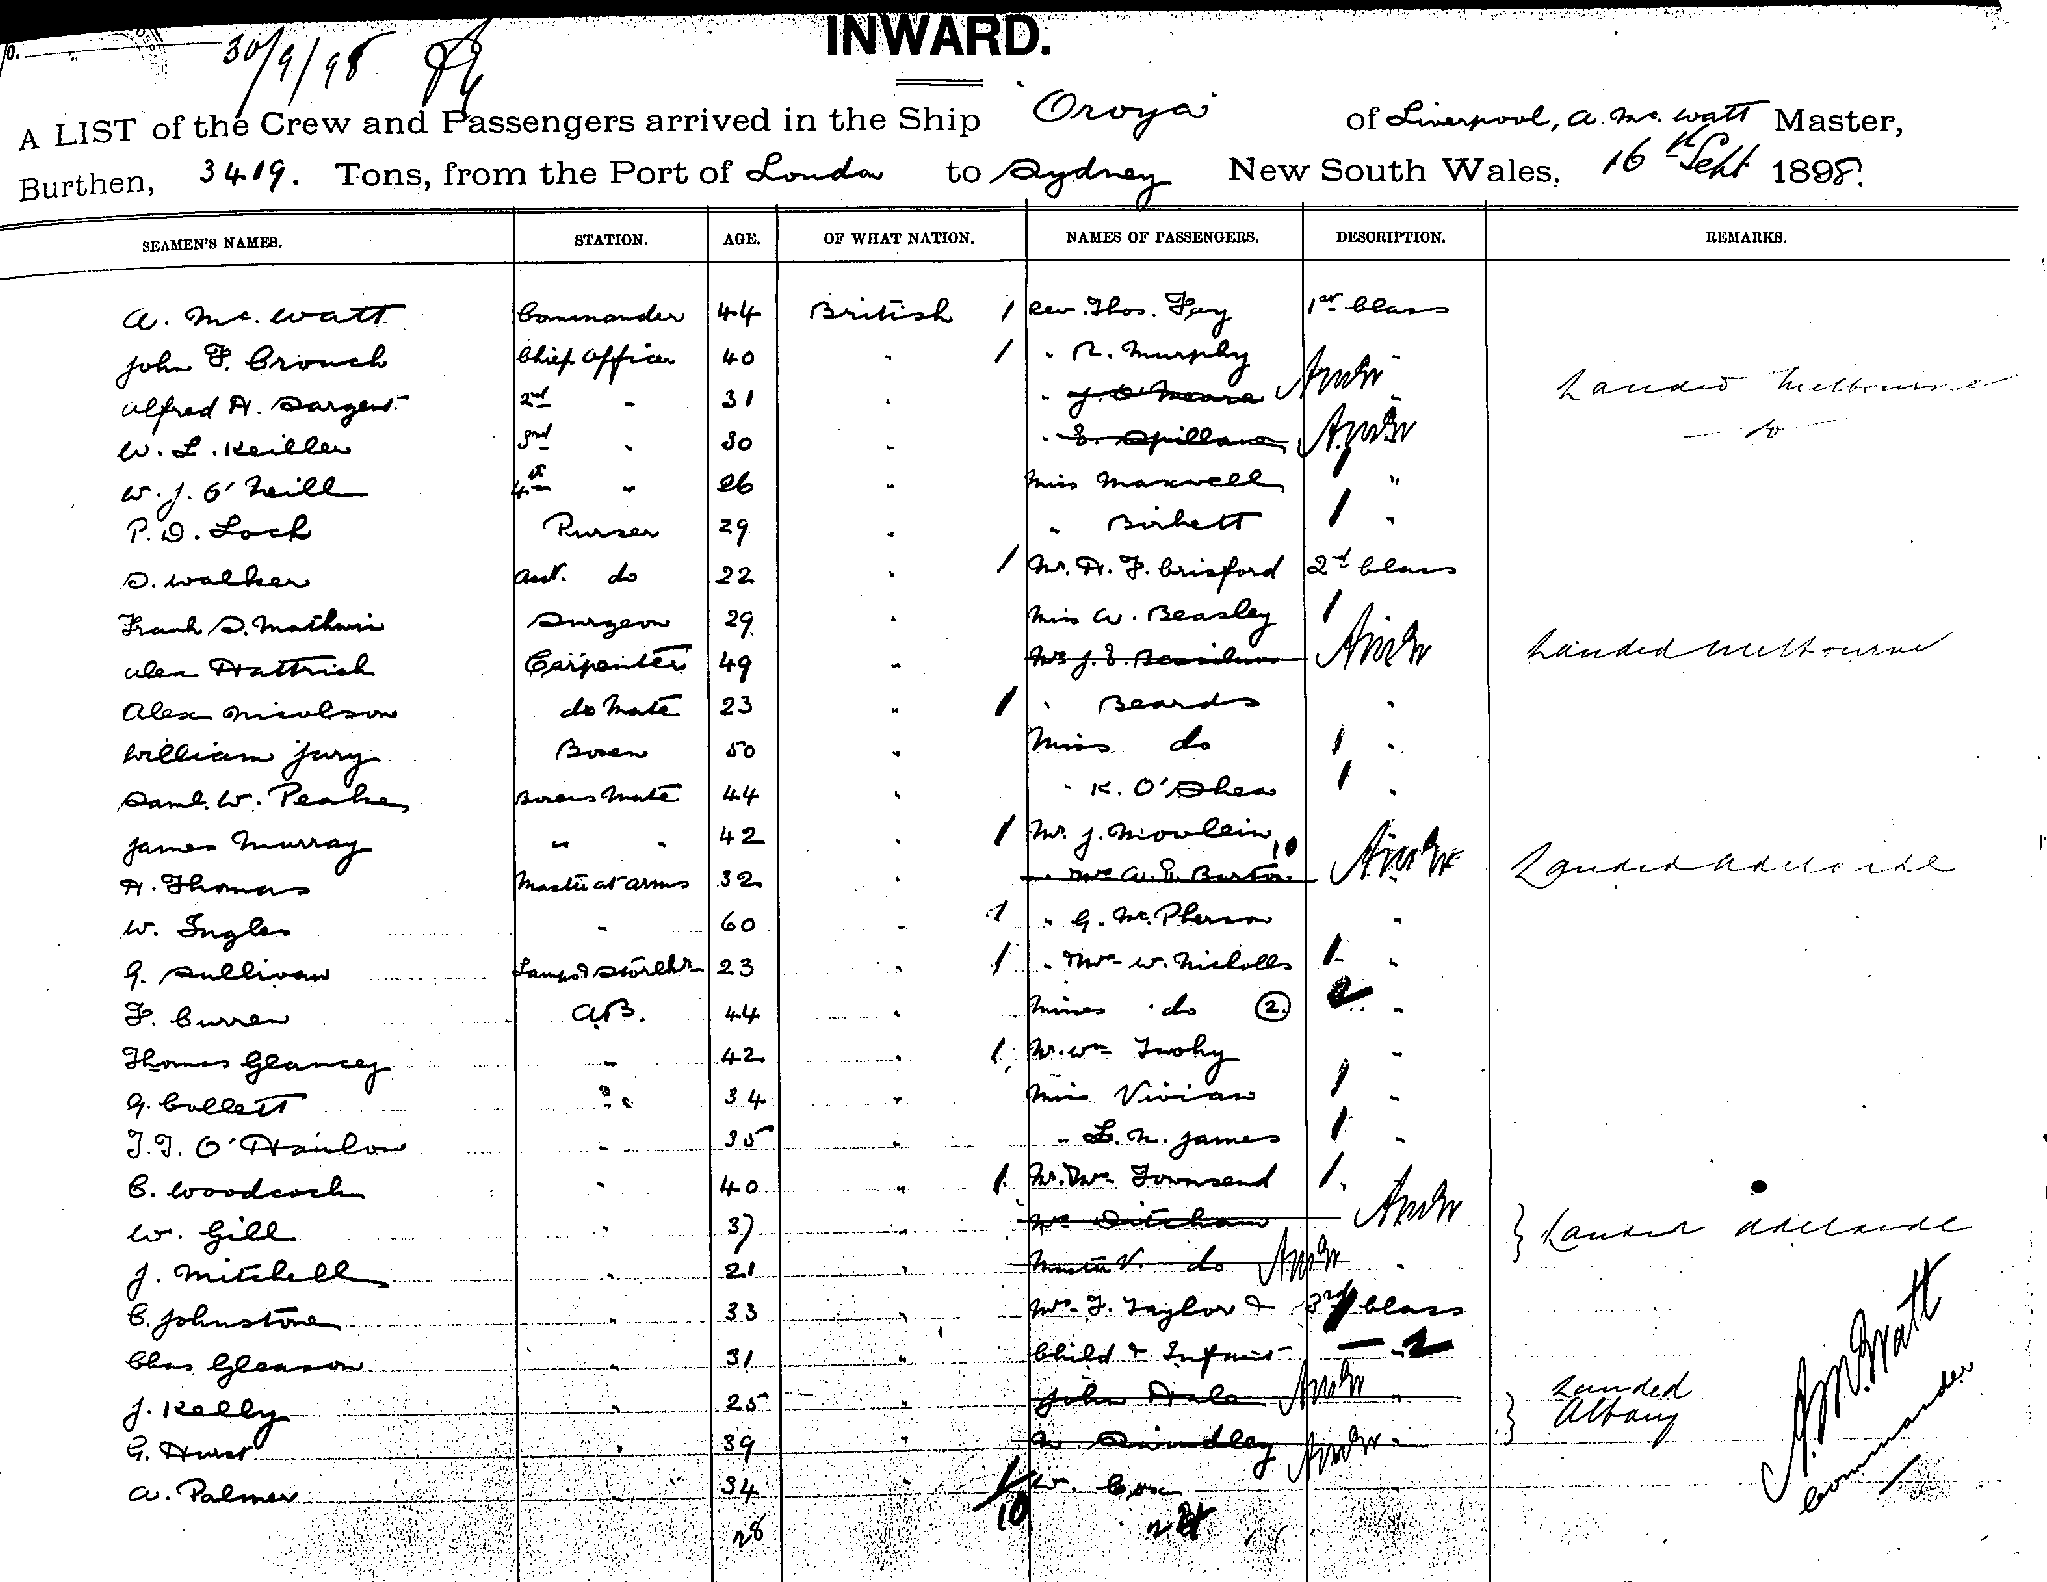 30/9/98
INWARD.
A LIST of the Crew and Passengers arrived in the Ship "Oroya" of Liverpool, A. Mc. Watt Master,
Burthen, 3419. Tons, from the Port of London to Sydney New South Wales, 16th Sept 1898.
SEAMEN'S NAMES. STATION. AGE. OF WHAT NATION. NAMES OF PASSENGERS. DESCRIPTION. REMARKS.
A. Mc. Watt Commander 44 British 1 Rev. Thos. Fay 1st Class
John F. Crouch Chief Officer 40 " 1 " R. Murphy "
Alfred H. Sargent 2nd " 31 " " J. O'Meara " Landed Melbourne
W. L. Keiller 3rd " 30 " " E. Spillane — do —
W. J. O'Neill 4th " 26 " Miss Maxwell "
P. D. Loch Purser 29 " " Birkett 1 "
S. Walker Asst. do 22 " 1 Mr. H. F. Crisford 2nd Class
Frank S. Mathwin Surgeon 29 " Miss W. Beasley 1
Alex Hattrick Carpenter 49 " Mr J. E. Landed Melbourne
Alex Nicolson do Mate 23 " 1 " Beards "
William Jury Bosen 50 " Miss do 1 "
Saml. W. Peake Bosens Mate 44 " " K. O'Shea 1 "
James Murray " " 42 " 1 Mr. J. Mowlein
H. Thomas Master at arms 32 " " Mrs A. E. Burton Landed Adelaide
W. Ingles " 60 " 1 " G. Mc. Pherson "
G. Sullivan Lamps & Storekr 23 " 1 " & Mrs W. Nicholls 1 "
F. Curren A.B. 44 " Misses do (2) 2 "
Thomas Glancey " 42 " 1 Mr. Wm Twohy "
G. Collett " 34 " Miss Vivian 1 "
T. J. O'Hanlon " 35 " " L. N. James 1 "
C. Woodcock " 40 " 1 Mr. & Mrs Townsend 1 "
W. Gill " 37 " Mrs Ditcham } Landed Adelaide
J. Mitchell " 21 " Master V. do "
C. Johnstone " 33 " Mrs F. Taylor & 3rd Class
Chas Gleason " 31 " Child & Infant — 2
J. Kelly " 25 " John Hale " } Landed
G. Hurst " 39 " Swindley " Albany
A. Palmer " 34 " 1 W. Cox
28 10 24
A. Mc. Watt
Commander